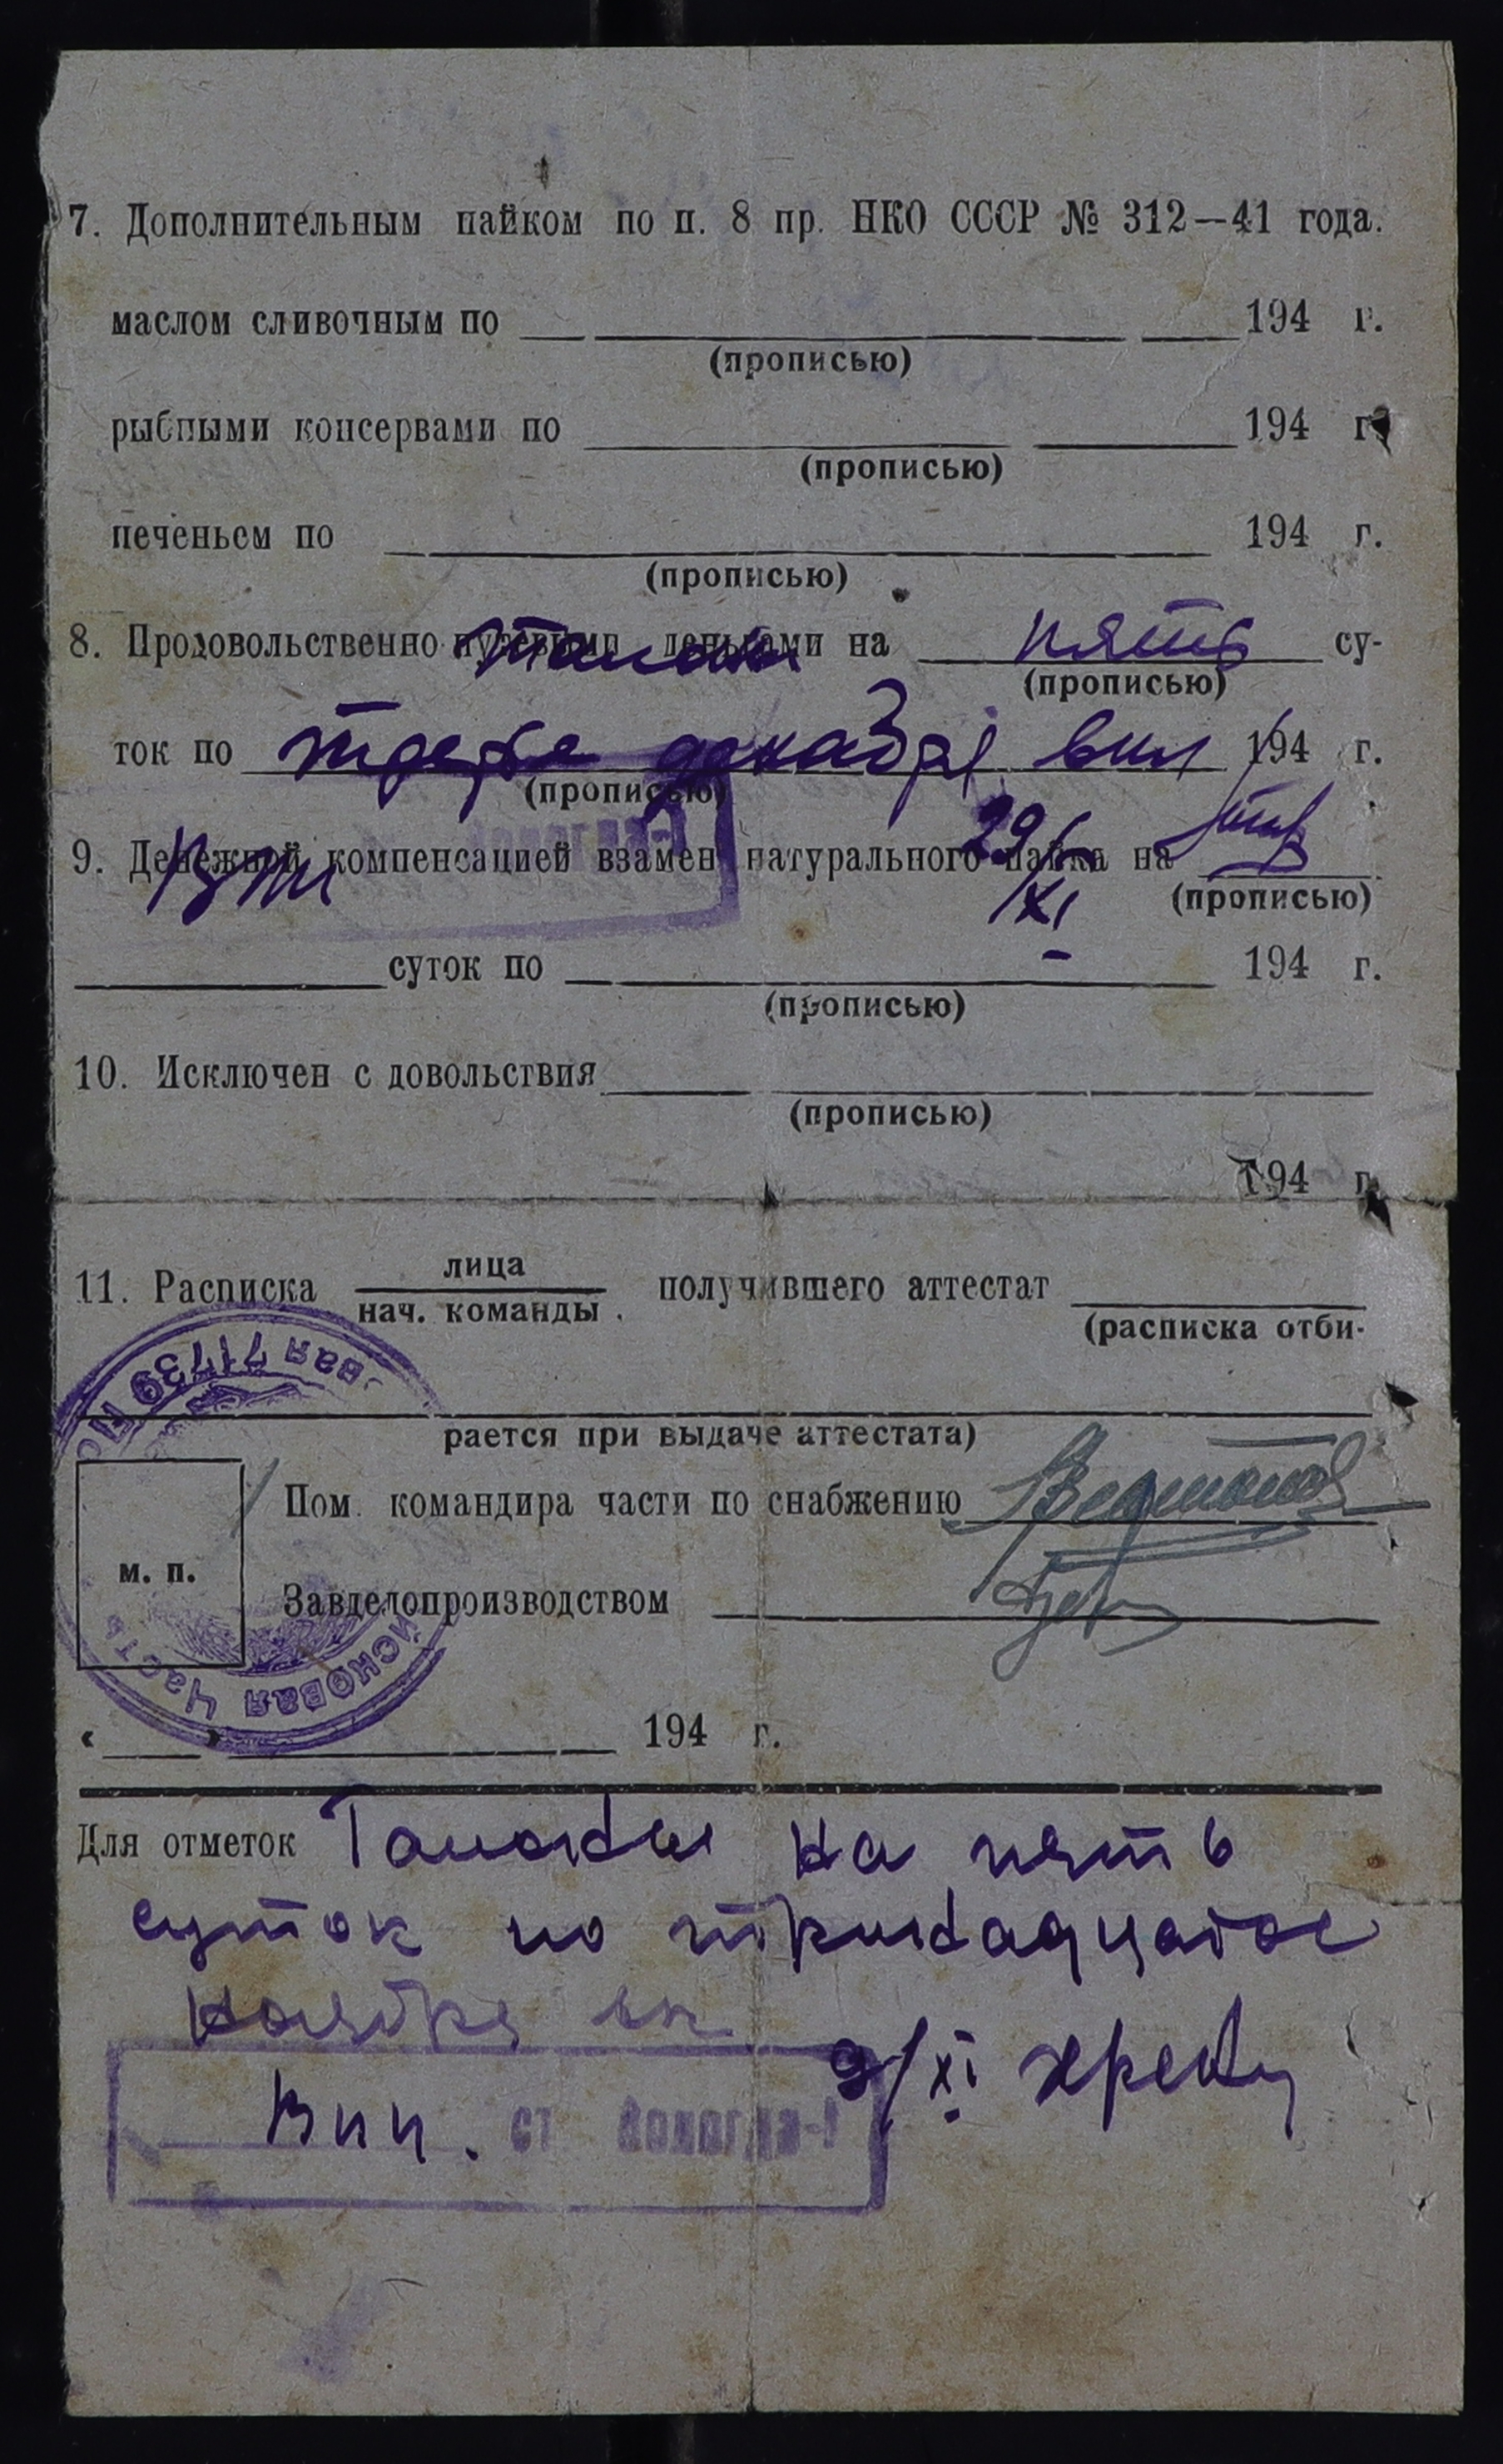 7. Дополнительным пайком по п. 8 пр. НКО СССР № 312—41 года.
маслом сливочным по 194 г.
(прописью)
рыбными консервами по 194 г.
(прописью)
печеньем по 194 г.
(прописью)
8. Продовольственно путевыми деньгами на пять су-
талоны
(прописью)
ток по третье декабря вкл 194 г.
(прописью)
9. Денежной компенсацией взамен натурального пайка на
29/XI
(прописью)
суток по 194 г.
(прописью)
10. Исключен с довольствия
(прописью)
194 г.
11. Расписка лица получившего аттестат
нач. команды
(расписка отби-
рается при выдаче аттестата)
Пом. командира части по снабжению
м. п.
Завделопроизводством
вая 71739
Часть
« » 194 г.
Для отметок Талоны на пять
суток по тринадцатое
ноября вк
9/XI
ст Вологда-1